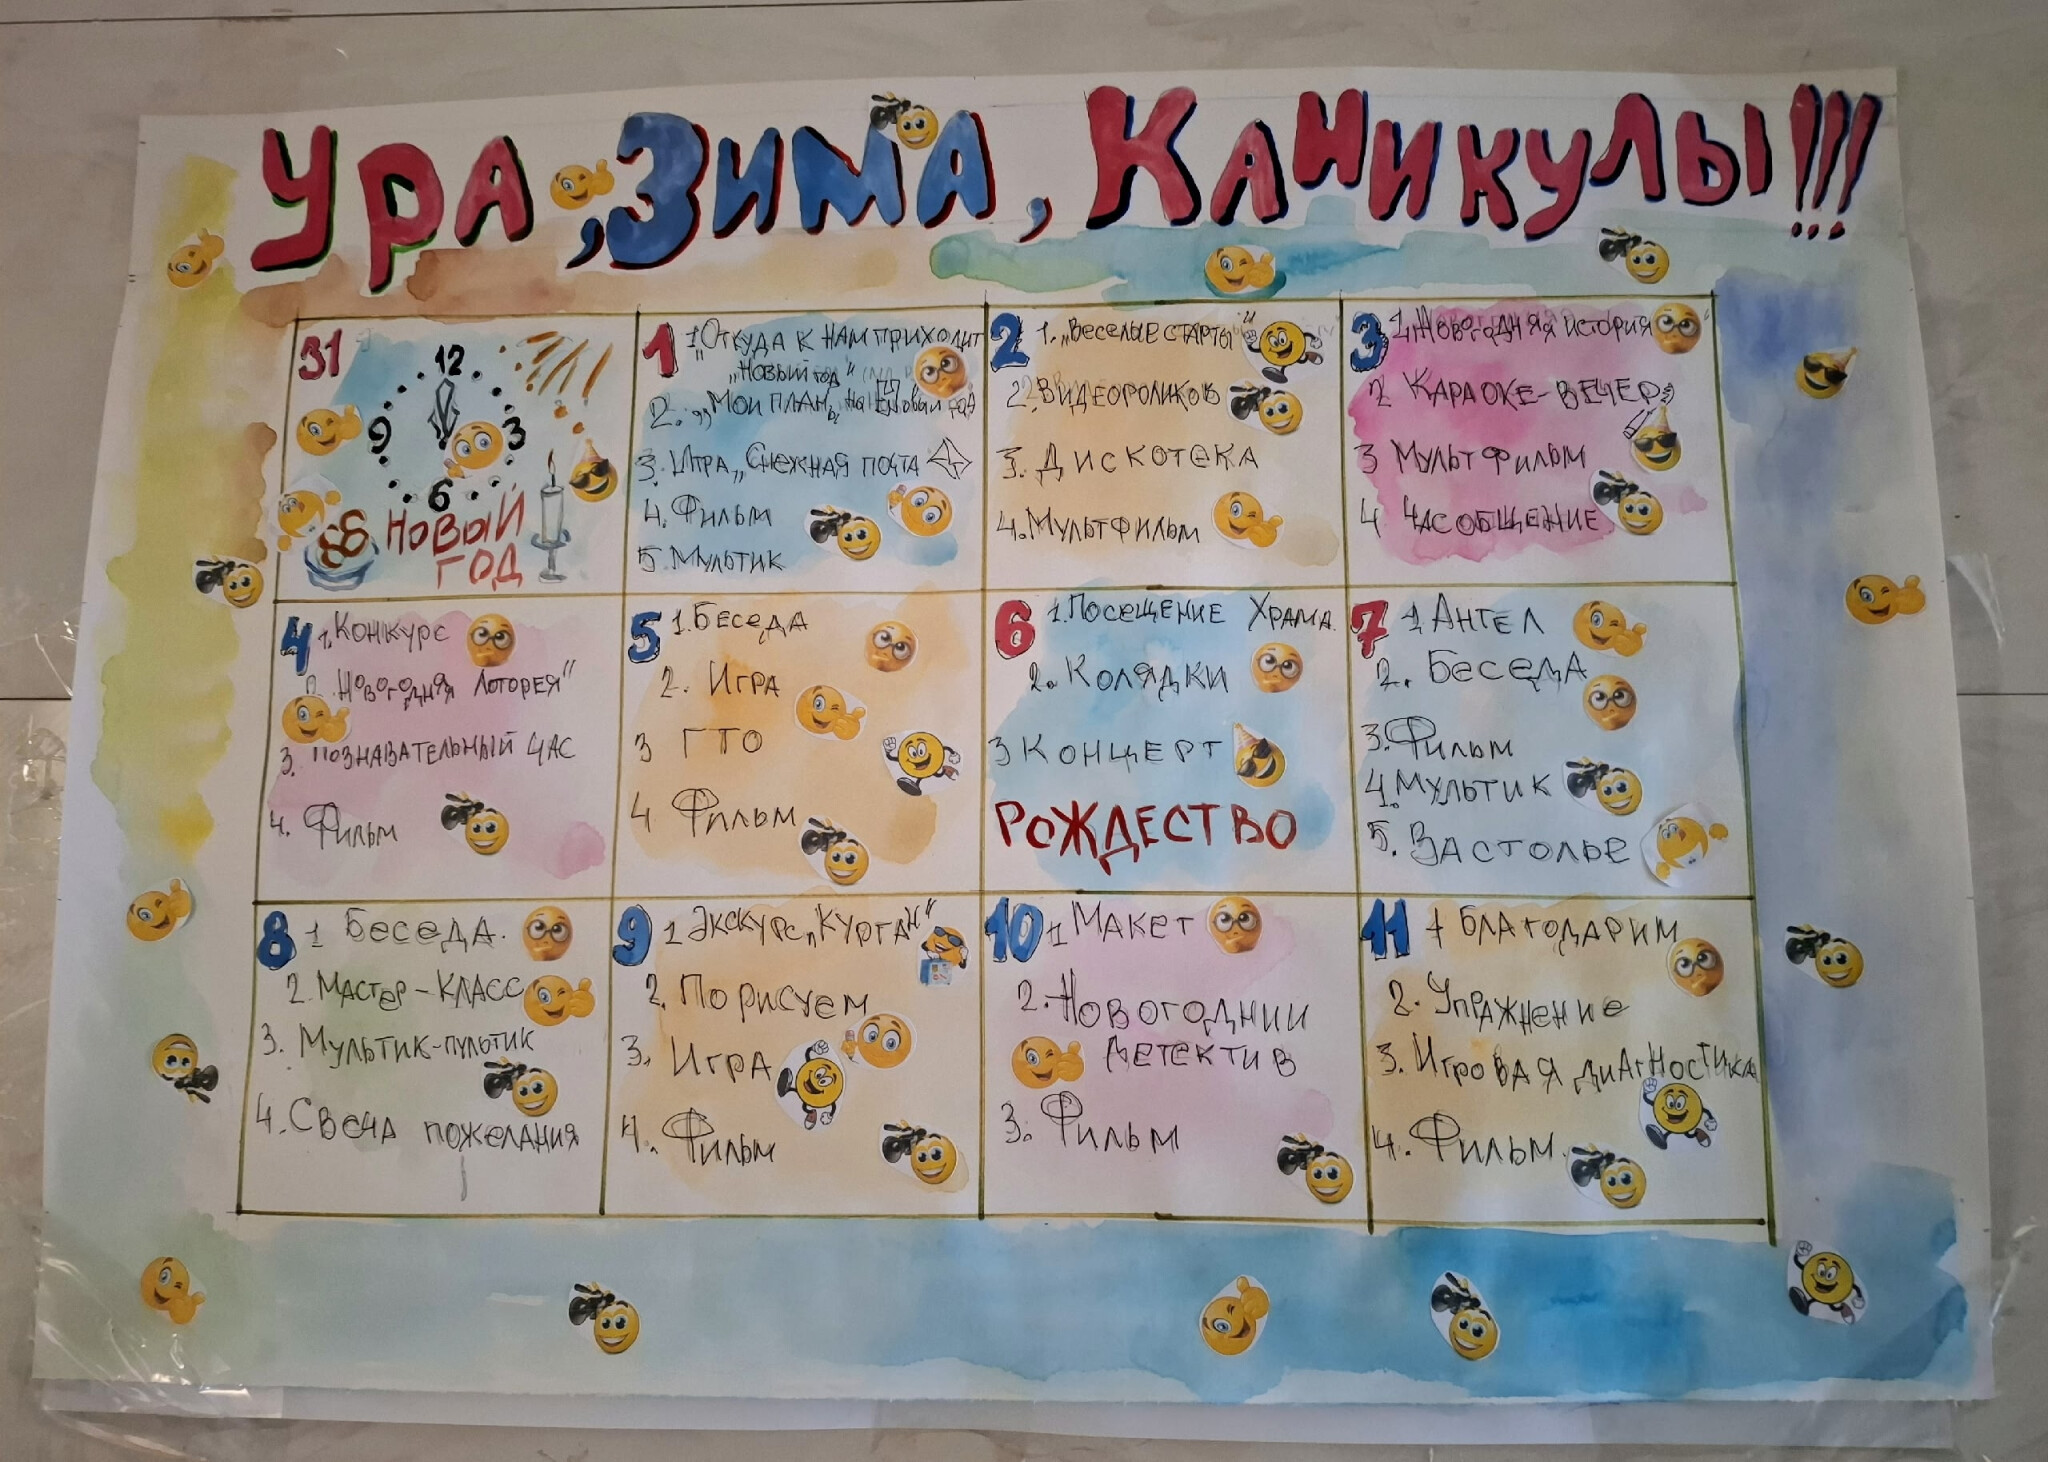 УРА, ЗИМА, КАНИКУЛЫ!!!
31
12
9 3
6
НОВЫЙ
ГОД
1 1 "Откуда к нам приходит
"Новый год"
2. "Мой план на новый год
3. Игра "Снежная почта
4. Фильм
5. Мультик
2 1. "Веселые старты"
2. Видеороликов
3. Дискотека
4. Мультфильм
3 1 "Новогодняя история"
2 Караоке-вечер
3 Мультфильм
4 Час общение
4 1. Конкурс
"Новогодняя лоторея"
3. Познавательный час
4. Фильм
5 1. Беседа
2. Игра
3 ГТО
4 Фильм
6 1. Посещение Храма
2. Колядки
3 Концерт
РОЖДЕСТВО
7 1 Ангел
2. Беседа
3. Фильм
4. Мультик
5. Застолье
8 1 Беседа.
2. Мастер-класс
3. Мультик-пультик
4. Свеча пожелания
9 1 Экскурс "Курган"
2. Порисуем
3. Игра
4. Фильм
10 1 Макет
2. Новогоднии
детектив
3. Фильм
11 1 Благодарим
2. Упражнение
3. Игровая диагностика
4. Фильм.